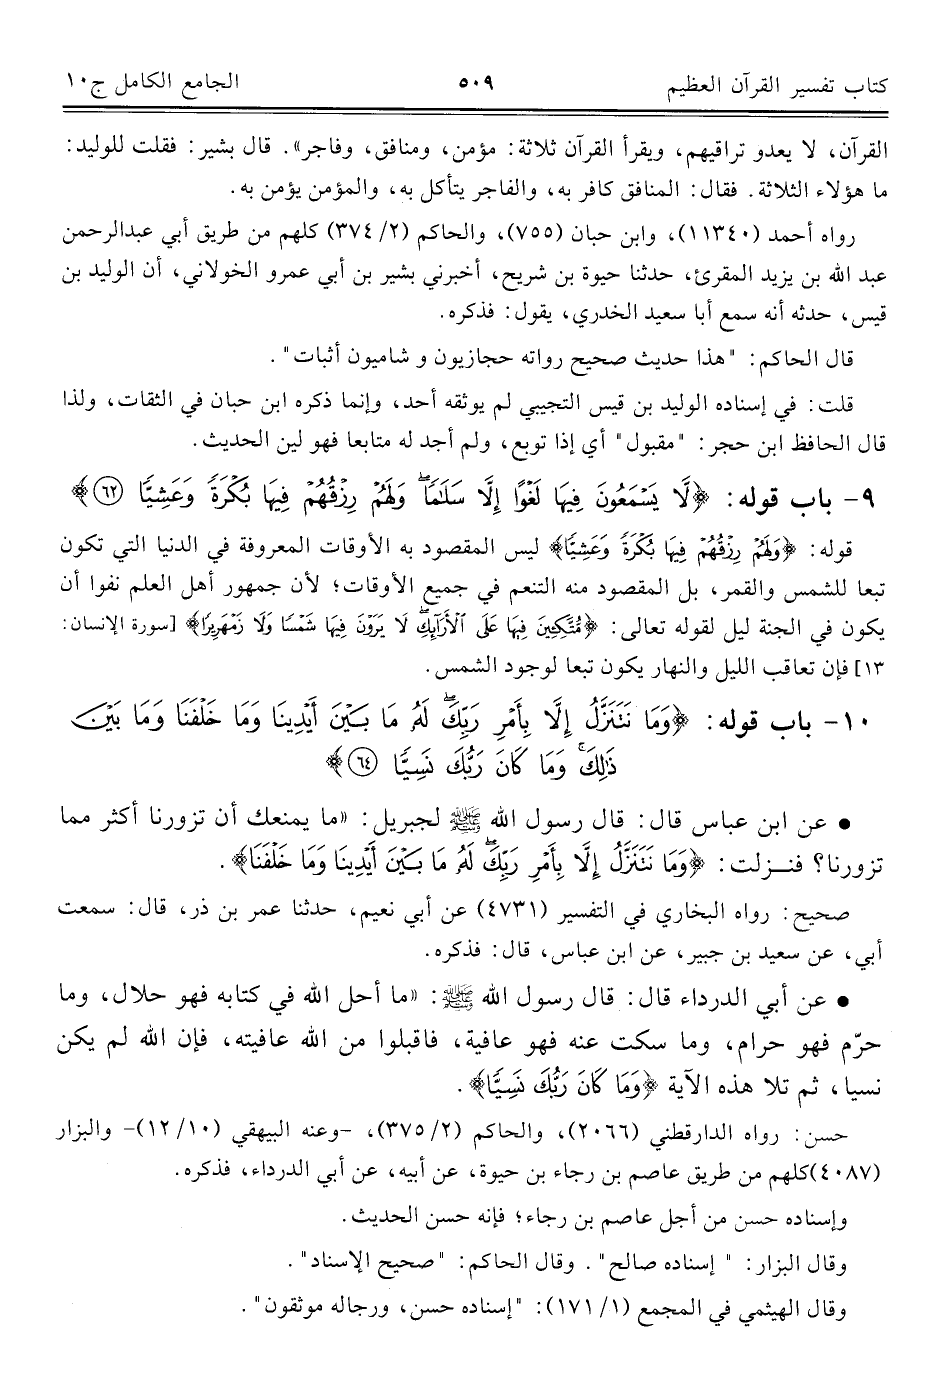 كتاب تفسير القرآن العظيم ٥٠٩ الجامع الكامل ج١٠
القرآن، لا يعدو تراقيهم، ويقرأ القرآن ثلاثة: مؤمن، ومنافق، وفاجر». قال بشير: فقلت للوليد:
ما هؤلاء الثلاثة. فقال: المنافق كافر به، والفاجر يتأكل به، والمؤمن يؤمن به.
رواه أحمد (١١٣٤٠)، وابن حبان (٧٥٥)، والحاكم (٣٧٤/٢) كلهم من طريق أبي عبدالرحمن
عبد الله بن يزيد المقرئ، حدثنا حيوة بن شريح، أخبرني بشير بن أبي عمرو الخولاني، أن الوليد بن
قيس، حدثه أنه سمع أبا سعيد الخدري، يقول: فذكره.
قال الحاكم: "هذا حديث صحيح رواته حجازيون و شاميون أثبات".
قلت: في إسناده الوليد بن قيس التجيبي لم يوثقه أحد، وإنما ذكره ابن حبان في الثقات، ولذا
قال الحافظ ابن حجر: "مقبول" أي إذا توبع، ولم أجد له متابعا فهو لين الحديث.
٩- باب قوله: ﴿لَّا يَسْمَعُونَ فِيهَا لَغْوًا إِلَّا سَلَٰمًا ۖ وَلَهُمْ رِزْقُهُمْ فِيهَا بُكْرَةً وَعَشِيًّا ٦٢﴾
قوله: ﴿وَلَهُمْ رِزْقُهُمْ فِيهَا بُكْرَةً وَعَشِيًّا﴾ ليس المقصود به الأوقات المعروفة في الدنيا التي تكون
تبعا للشمس والقمر، بل المقصود منه التنعم في جميع الأوقات؛ لأن جمهور أهل العلم نفوا أن
يكون في الجنة ليل لقوله تعالى: ﴿مُّتَّكِـِٔينَ فِيهَا عَلَى ٱلْأَرَآئِكِ ۖ لَا يَرَوْنَ فِيهَا شَمْسًا وَلَا زَمْهَرِيرًا﴾ [سورة الإنسان:
١٣] فإن تعاقب الليل والنهار يكون تبعا لوجود الشمس.
١٠- باب قوله: ﴿وَمَا نَتَنَزَّلُ إِلَّا بِأَمْرِ رَبِّكَ ۖ لَهُۥ مَا بَيْنَ أَيْدِينَا وَمَا خَلْفَنَا وَمَا بَيْنَ
ذَٰلِكَ ۚ وَمَا كَانَ رَبُّكَ نَسِيًّا ٦٤﴾
• عن ابن عباس قال: قال رسول الله ﷺ لجبريل: «ما يمنعك أن تزورنا أكثر مما
تزورنا؟ فنـزلت: ﴿وَمَا نَتَنَزَّلُ إِلَّا بِأَمْرِ رَبِّكَ ۖ لَهُۥ مَا بَيْنَ أَيْدِينَا وَمَا خَلْفَنَا﴾.
صحيح: رواه البخاري في التفسير (٤٧٣١) عن أبي نعيم، حدثنا عمر بن ذر، قال: سمعت
أبي، عن سعيد بن جبير، عن ابن عباس، قال: فذكره.
• عن أبي الدرداء قال: قال رسول الله ﷺ: «ما أحل الله في كتابه فهو حلال، وما
حرّم فهو حرام، وما سكت عنه فهو عافية، فاقبلوا من الله عافيته، فإن الله لم يكن
نسيا، ثم تلا هذه الآية ﴿وَمَا كَانَ رَبُّكَ نَسِيًّا﴾.
حسن: رواه الدارقطني (٢٠٦٦)، والحاكم (٣٧٥/٢)، -وعنه البيهقي (١٢/١٠)- والبزار
(٤٠٨٧)كلهم من طريق عاصم بن رجاء بن حيوة، عن أبيه، عن أبي الدرداء، فذكره.
وإسناده حسن من أجل عاصم بن رجاء؛ فإنه حسن الحديث.
وقال البزار: " إسناده صالح". وقال الحاكم: "صحيح الإسناد".
وقال الهيثمي في المجمع (١٧١/١): "إسناده حسن، ورجاله موثقون".